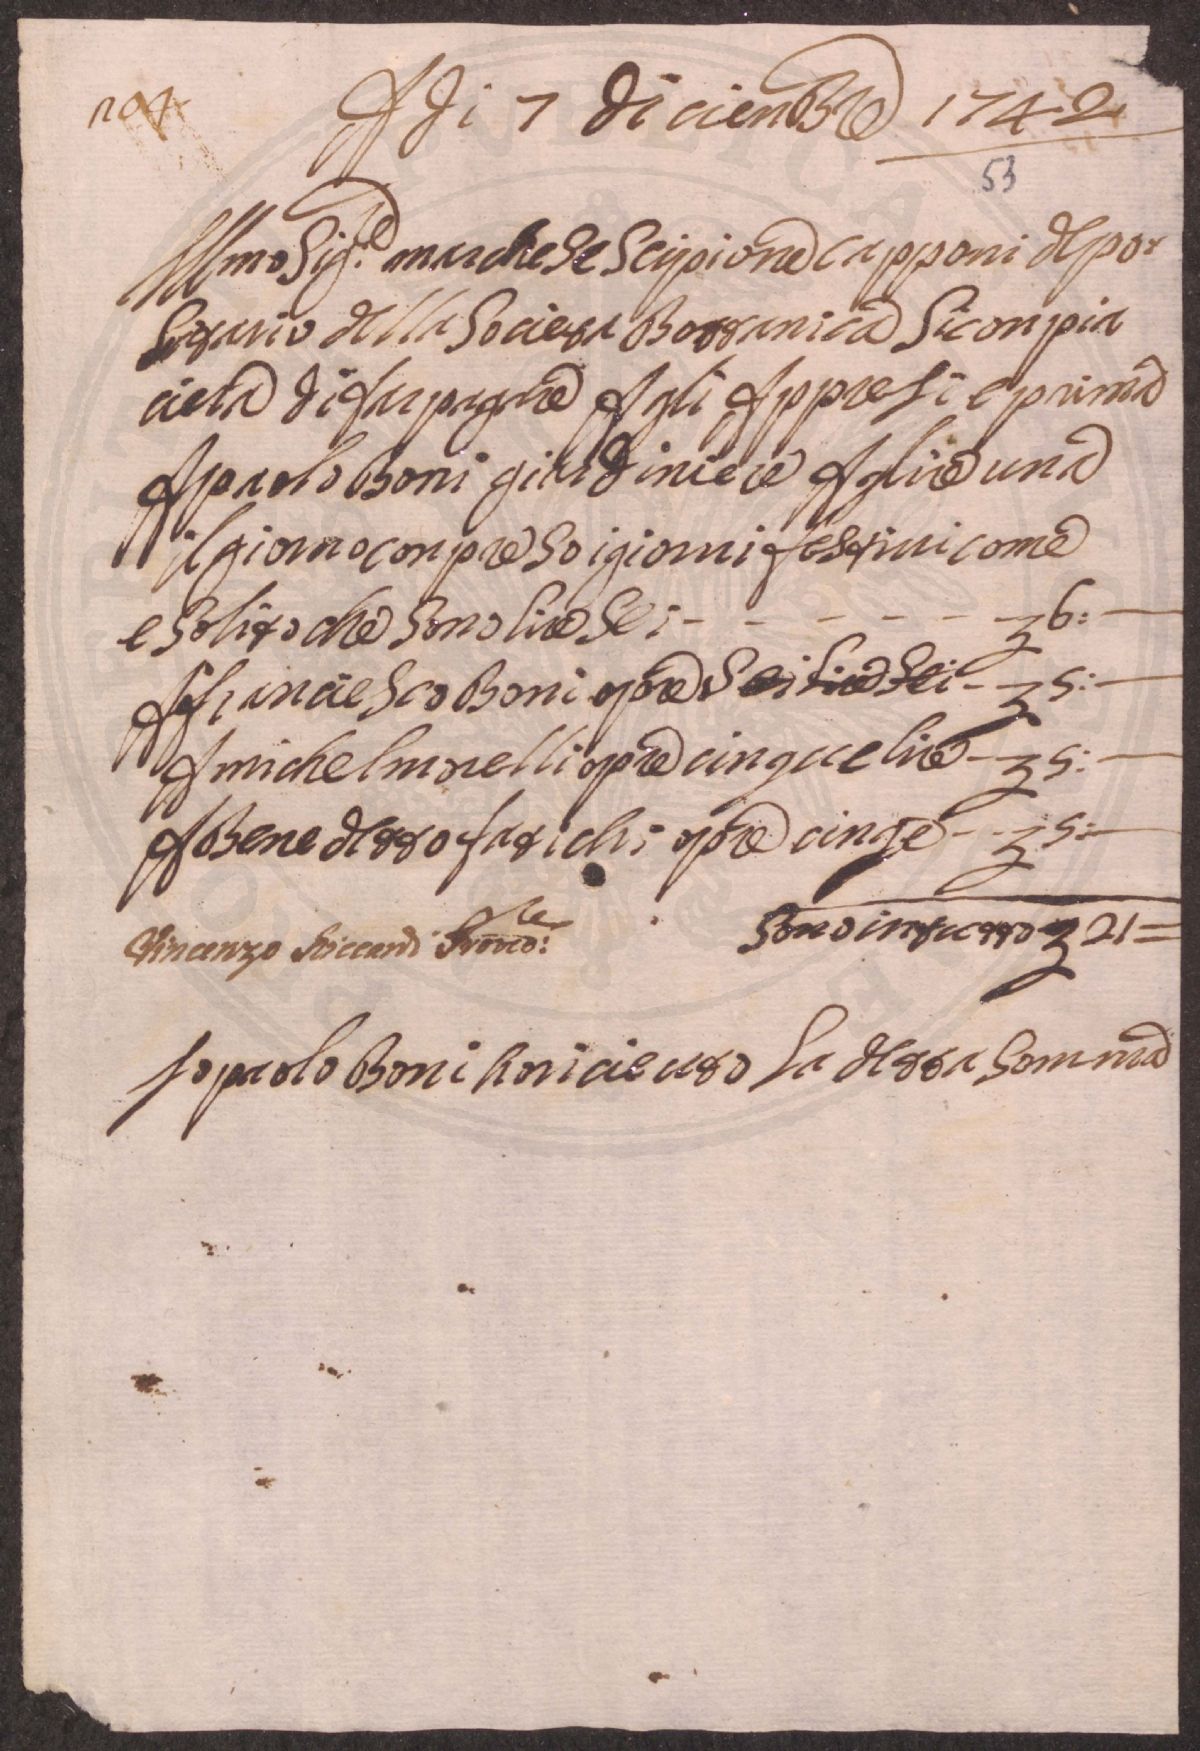 n 04
A di 7 diciembre 1742
53
Illmo Sig.re marchese Scipione Capponi depo
Sitario della Societa Bottanica Si conpia
ciera di far pagare A gli Appresi e prima
A paolo Boni giardiniere A lire una
il giorno conpreso i giorni festivi come
e Solito che Sono lire Sei - - - - - - £ 6: —
A franciesco Boni opre Sei - £ 5: —
A michel morelli opre cinque lire - £ 5: —
A Benedetto fatichi opre cinqe - - £ 5: —
Vincenzo Riccardi Provd:re
Sono in tutto £ 21 =
Io paolo Boni ho riceuto la detta Somma